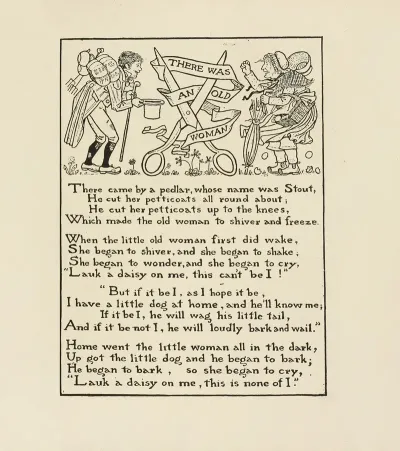 THERE WAS
AN OLD
WOMAN
There came by a pedlar, whose name was Stout,
He cut her petticoats all round about;
He cut her petticoats up to the knees,
Which made the old woman to shiver and freeze.
When the little old woman first did wake,
She began to shiver, and she began to shake;
She began to wonder, and she began to cry,
"Lauk a daisy on me, this can't be I!"
"But if it be I, as I hope it be,
I have a little dog at home, and he'll know me;
If it be I, he will wag his little tail,
And if it be not I, he will loudly bark and wail."
Home went the little woman all in the dark,
Up got the little dog and he began to bark;
He began to bark, so she began to cry,
"Lauk a daisy on me, this is none of I."